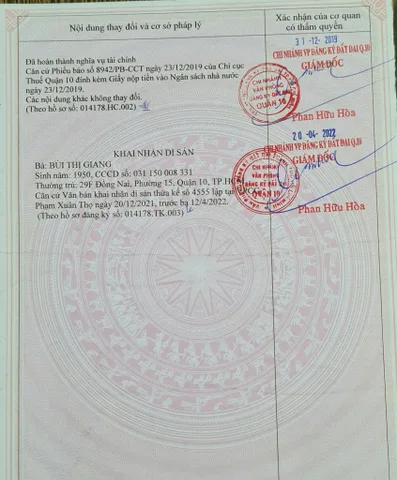 Nội dung thay đổi và cơ sở pháp lý
Xác nhận của cơ quan
có thẩm quyền
Đã hoàn thành nghĩa vụ tài chính
Căn cứ Phiếu báo số 8942/PB-CCT ngày 23/12/2019 của Chi cục
Thuế Quận 10 đính kèm Giấy nộp tiền vào Ngân sách nhà nước
ngày 23/12/2019.
Các nội dung khác không thay đổi.
(Theo hồ sơ số: 014178.HC.002)
31-12-2019
CHI NHÁNH VP ĐĂNG KÝ ĐẤT ĐAI Q.10
GIÁM ĐỐC
CHI NHÁNH
VĂN PHÒNG
ĐĂNG KÝ ĐẤT ĐAI
QUẬN 10
Phan Hữu Hòa
KHAI NHẬN DI SẢN
Bà: BÙI THỊ GIANG
Sinh năm: 1950, CCCD số: 031 150 008 331
Thường trú: 29F Đồng Nai, Phường 15, Quận 10, TP.HCM
Căn cứ Văn bản khai nhận di sản thừa kế số 4555 lập tại
Phạm Xuân Thọ ngày 20/12/2021, trước bạ 12/4/2022.
(Theo hồ sơ đăng ký số: 014178.TK.003)
20-04-2022
CHI NHÁNH VP ĐĂNG KÝ ĐẤT ĐAI Q.10
GIÁM ĐỐC
CHI NHÁNH
VĂN PHÒNG
ĐĂNG KÝ ĐẤT ĐAI
QUẬN 10
Phan Hữu Hòa